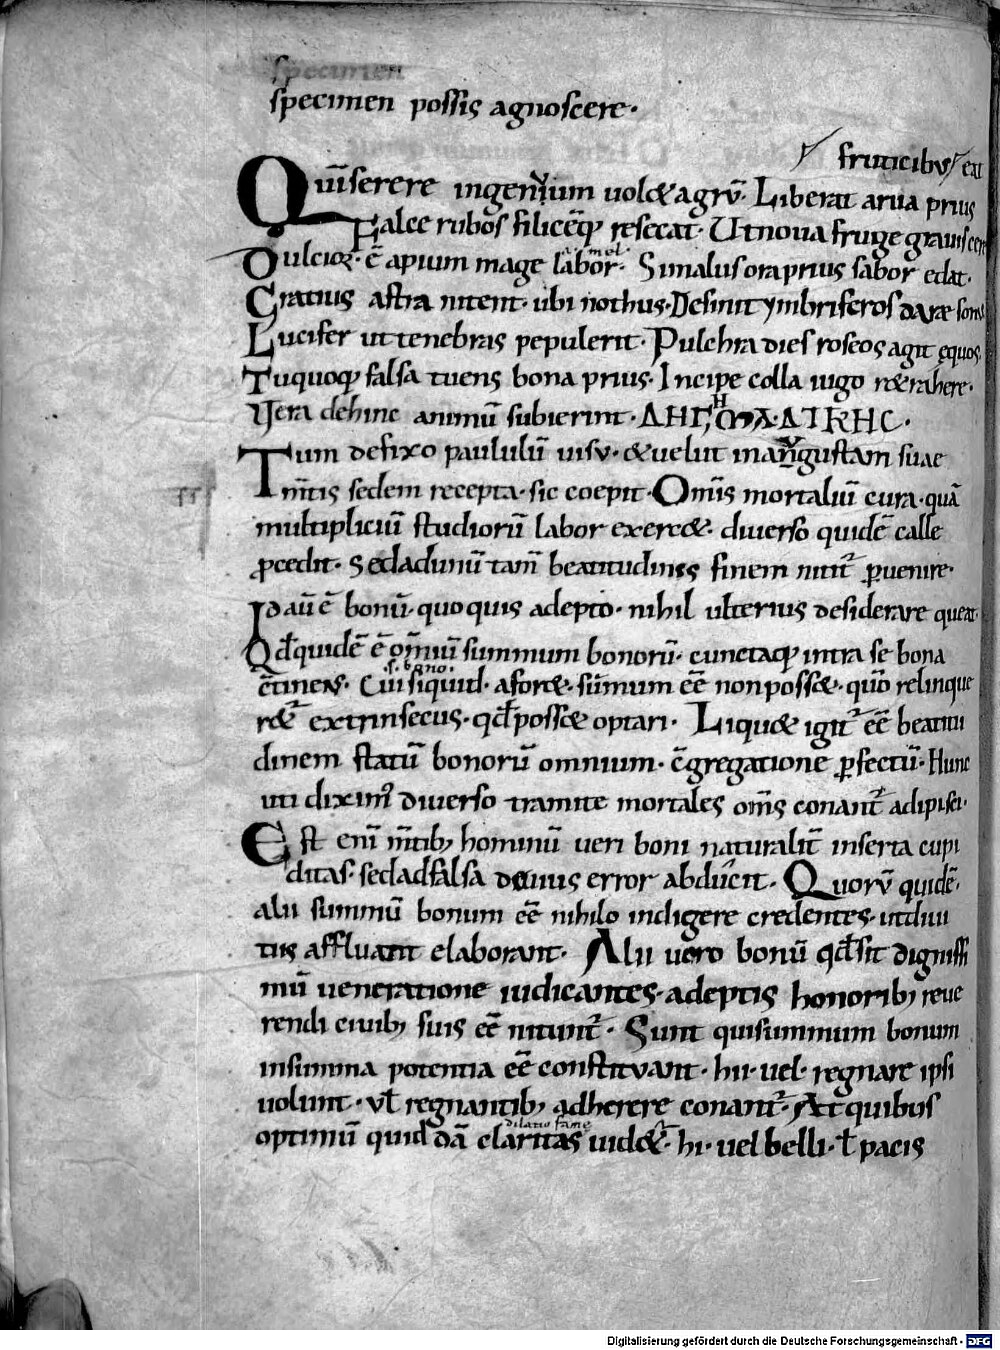 specimen
specimen possis agnoscere·
fruticibus
Quīserere ingenuum uol&agrū· Liberat arua prius
Falce rubos filicēq; resecat· Vtnoua fruge grauis
Dulcior· ē apium mage labor· Simalusoraprius sabor edat·
ł mel·
Gratius astra nitent· ubi nothus· Desinit ymbriferos dare sonos
Lucifer uttenebras pepulerit· Pulchra dies roseos agit ęquos
Tuquoq; falsa tuens bona prius· Incipe colla iugo r&rahere·
Vera dehinc animū subierint·
Tum defixo paululū uisu· &uelut inangustam suae
m̄tis sedem recepta· sic coepit· Om̄is mortaliū cura· quā
multipliciū studiorū labor exerc&· diuerso quidē calle
ꝓcedit· Sedadunū tam̄ beatitudinis finem nitit̄ ꝑuenire·
Id aū ē bonū· quo quis adepto· nihil ulterius desiderare queat·
Qđ quidē ē omniū summum bonorū· cunctaq; intra se bona
s· bono·
c̄tinens· Cui siquid· afor&· sūmum eē nonposs&· qūo relinque
r&̄ extrinsecus· qđ poss& optari· Liqu& igit̄ eē beatitu
dinem statū bonorū omnium· c̄gregatione ꝑfectū· Hunc
uti diximꝰ diuerso tramite mortales om̄s conant̄ adipisci·
Est enī m̄tib; hominū ueri boni naturalit̄ inserta cupi
ditas· sedadfalsa deuius error abducit· Quorū quidē·
alii summū bonum eē nihilo indigere credentes· utdiui
tiis affluant elaborant· Alii uero bonū qđ sit dignissi
mū ueneratione iudicantes· adeptis honorib; reue
rendi ciuib; suis eē nitunt̄· Sunt quisummum bonum
insumma potentia eē constituant· hii· uel· regnare ipsi
uolunt· uł regnantib; adherere conant̄· At quibus
dilatio famę
optimū quiddā claritas uid&̄· hi· uel belli· ł pacis
Digitalisierung gefördert durch die Deutsche Forschungsgemeinschaft - DFG